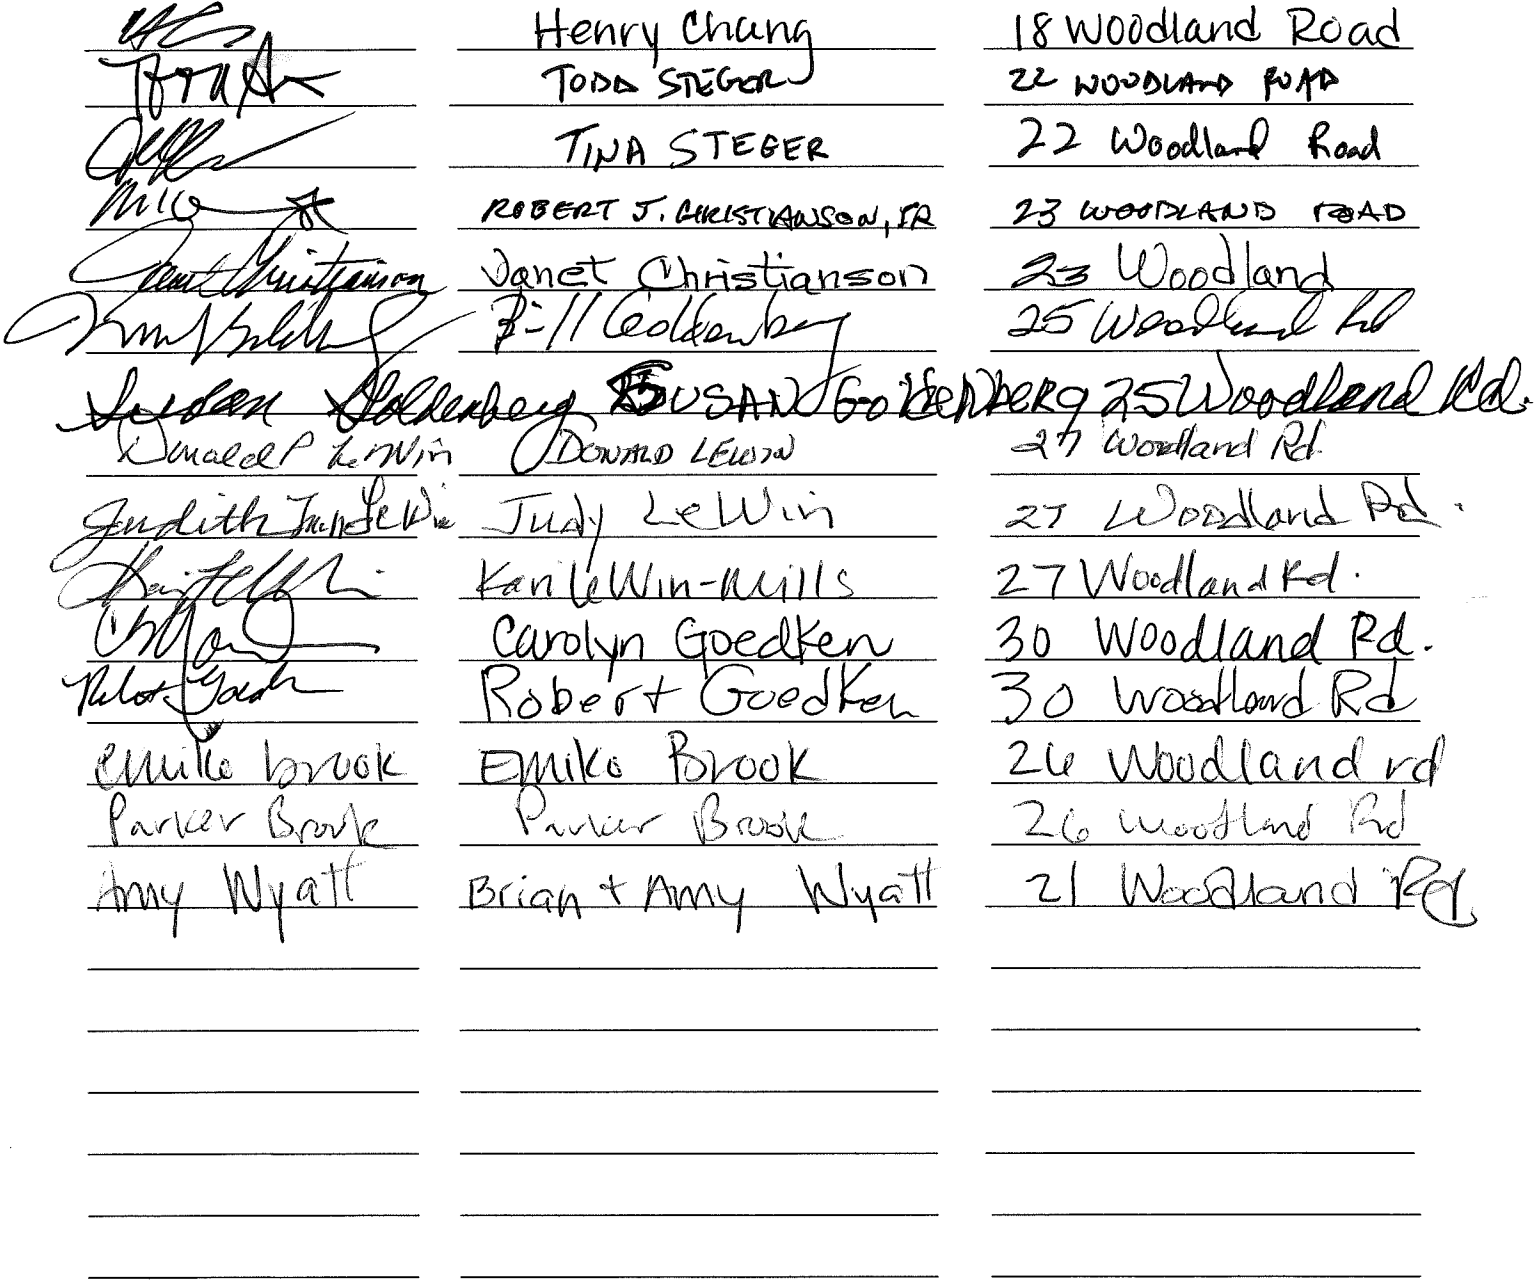 Henry Chang 18 Woodland Road
TODD STEGER 22 WOODLAND ROAD
TINA STEGER 22 Woodland Road
ROBERT J. CHRISTIANSON, JR 23 WOODLAND ROAD
Janet Christianson Janet Christianson 23 Woodland
Bill Goldenberg 25 Woodland Rd
Susan Goldenberg SUSAN Goldenberg 25 Woodland Rd.
Donald P LeWin DONALD LEWIN 27 Woodland Rd.
Judith LeWin Judy LeWin 27 Woodland Rd.
Kari LeWin-Mills 27 Woodland Rd.
Carolyn Goedken 30 Woodland Rd.
Robert Goedken 30 Woodland Rd
emiko brook Emiko Brook 26 Woodland rd
Parker Brook Parker Brook 26 Woodland Rd
Amy Wyatt Brian + Amy Wyatt 21 Woodland Rd